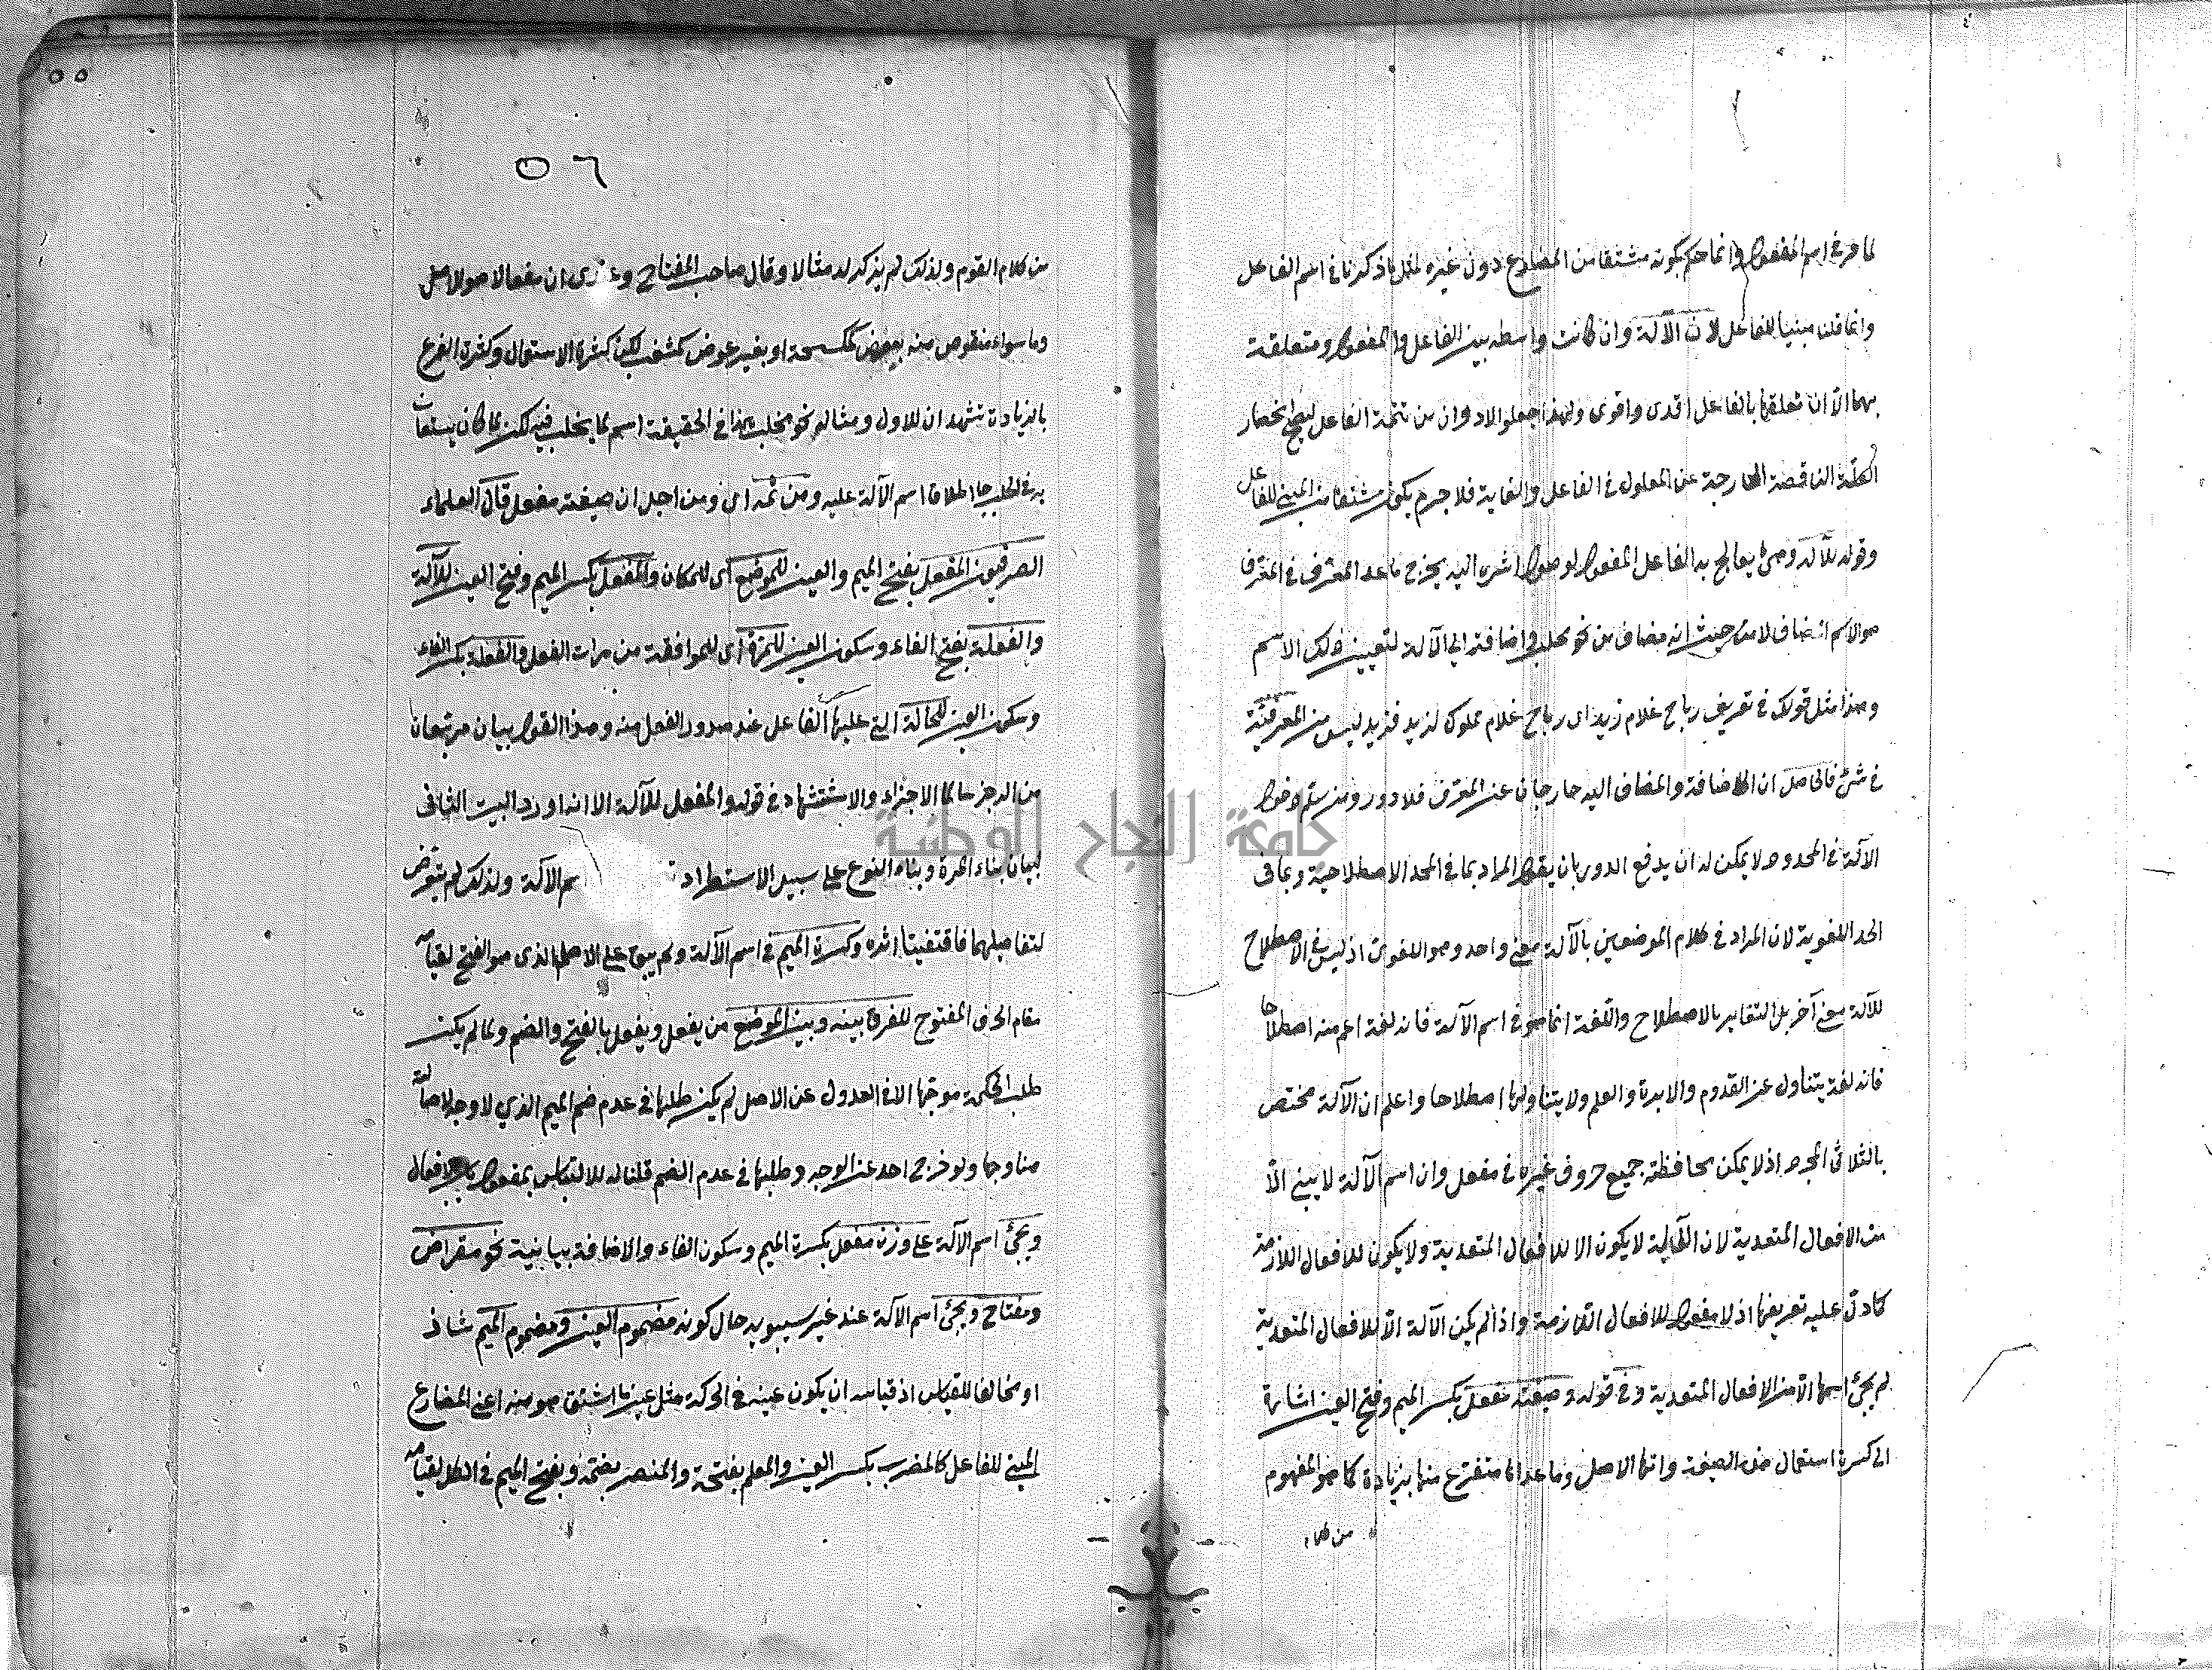 لما مر في اسم المفعول وانما حكم بكونه مشتقا من المضارع دون غيره لمثل ما ذكرنا في اسم الفاعل
وانما قلنا مبنيا للفاعل لان الآلة وان كانت واسطة بين الفاعل والمفعول ومتعلقة
بهما الا ان تعلقها بالفاعل اقدم واقوى ولهذا جعلوا الادوان من تتمة الفاعل ليصح انحصار
العلة الناقصة الخارجة عن المعلول في الفاعل والغاية فلا جرم يكون مشتقا من المبني للفاعل
وقوله للآلة وهي ما يعالج به الفاعل المفعول لوصول اثره اليه يخرج ما عدا المعرف في المعرف
هو الاسم المضاف لا من حيث انه مضاف من نحو محلب واضافته الى الآلة لتعيين ذلك الاسم
وهذا مثل قولك في تعريف رباح غلام زيد اى رباح غلام مملوك لزيد فزيد ليس من المعرفية
في شئ فالحاصل ان الاضافة والمضاف اليه خارجان عن المعرف فلا دور ومن سلم دخول
الآلة في المحدود لا يمكن له ان يدفع الدور بان يقول المراد بما في الحد الاصطلاحية وبما في
الحد اللغوية لان المراد في كلام الموضعين بالآلة معنى واحد وهو اللغوى اذ ليس في الاصطلاح
للآلة معنى آخر بل التغاير بالاصطلاح واللغة انما هو في اسم الآلة فانه لغة اعم منه اصطلاحا
فانه لغة يتناول عن القدوم والابرة والعلم ولا يتناولها اصطلاحا واعلم ان الآلة مختص
بالثلاثى المجرد اذ لا يمكن محافظة جميع حروف غيره في مفعل وان اسم الآلة لا يبنى الا
من الافعال المتعدية لان الآلية لا يكون الا للافعال المتعدية ولا يكون للافعال اللازمة
كما دل عليه تعريفها اذ لا مفعول للافعال اللازمة واذا لم يكن الآلة الا للافعال المتعدية
لم يجئ اسمها الا من الافعال المتعدية وفي قوله وصيغته مفعل بكسر الميم وفتح العين اشارة
الى كثرة استعمال هذه الصيغة وانها الاصل وما عداها متفرع منها بزيادة كما هو المفهوم
من كلام
٥٦
من كلام القوم ولذلك لم يذكر له مثالا وقال صاحب المفتاح وعندى ان مفعالا هو الاصل
وما سواه منقوص منه بعوض كمكسحة او بغير عوض كمشعب لكن كثرة الاستعمال وكثرة الفرع
بالزيادة تشهد ان للاول ومثاله نحو محلب هذا في الحقيقة اسم لما يحلب فيه لكن لما كان يستعان
به في الحلب جاز اطلاق اسم الآلة عليه ومن ثمه اى ومن اجل ان صيغته مفعل قال العلماء
الصرفيون المفعل بفتح الميم والعين للموضع اى للمكان والمفعل بكسر الميم وفتح العين للآلة
والفعلة بفتح الفاء وسكون العين للمرة اى للموافقة من مرات الفعل والفعلة بكسر الفاء
وسكون العين للحالة التي عليها الفاعل عند صدور الفعل منه وهذا القول بيتان مربعان
من الرجز سالما الاجزاء والاستشهاد في قوله والمفعل للآلة الا انه اورد البيت الثانى
لبيان بناء المرة وبناء النوع على سبيل الاستطراد سم الآلة ولذلك لم يتعرض
لتفاصيلهما فاقتفيتا اثره وكسرة الميم في اسم الآلة ولم يبق على الاصل الذى هو الفتح لقيامه
مقام الحرف المفتوح للفرق بينه وبين الموضع من يفعل ويفعل بالفتح والضم ولما لم يكن
طلب الحكمة موجها الا في العدول عن الاصل لم يكن طلبها في عدم ضم الميم الذي لا وجه لاصالته
هنا وجها ولو خرج احد عن الوجه وطلبها في عدم الضم قلنا له للالتباس بمفعول باب الافعال
ويجئ اسم الآلة على وزن مفعل بكسرة الميم وسكون الفاء والاضافة بيانية نحو مقراض
ومفتاح ويجئ اسم الآلة عند غير سيبويه حال كونه مضموم العين ومضموم الميم شاذ
او مخالفا للقياس اذ قياسه ان يكون عينه في الحركة مثل عين ما اشتق هو منه اعنى المضارع
المبني للفاعل كالمضرب بكسر العين والمعلم بفتحة والمنصر بضمة وبفتح الميم في الكل لقيامه
جامعة النجاح الوطنية